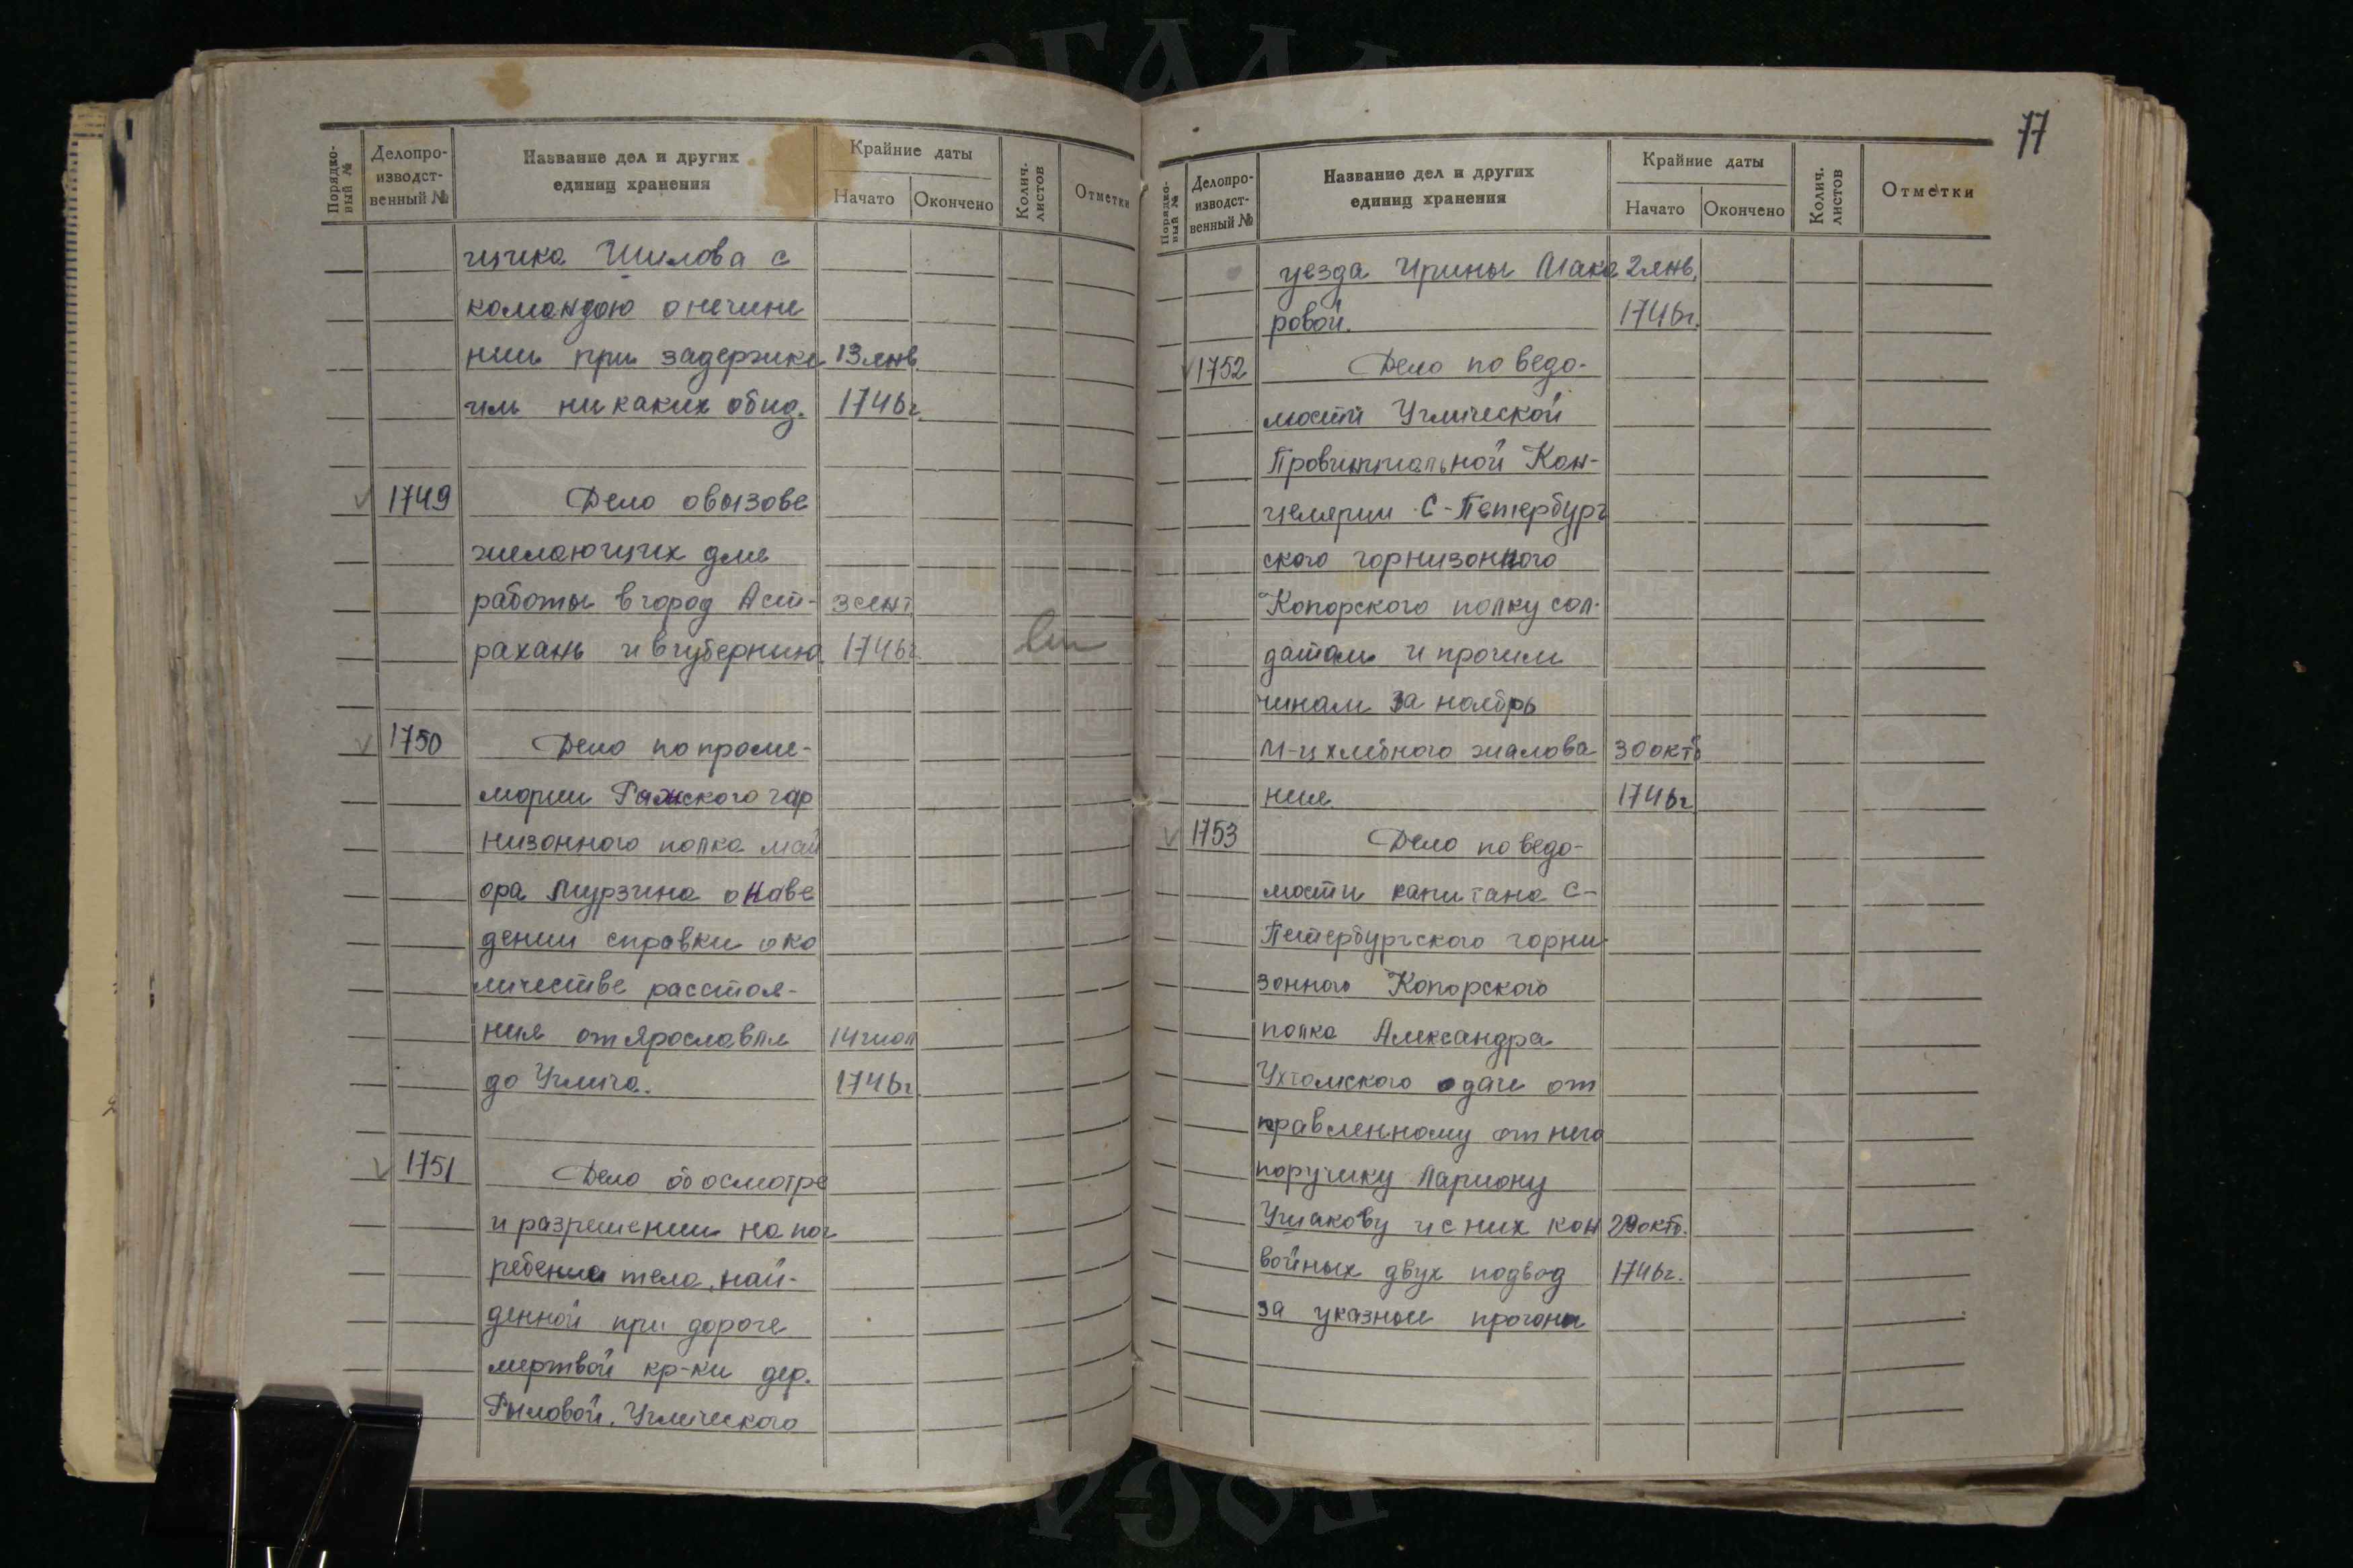 Порядко-
вый №
Делопро-
изводст-
венный №
Название дел и других
единиц хранения
Крайние даты
Начато
Окончено
Колич.
листов
Отметки
щика Шилова с
командою о нечине
нии при задержке 13 янв
им никаких обид. 1746г.
1749 Дело о вызове
желающих для
работы в город Аст- 3 сент
рахань и в губернию 1746г
1750 Дело по проме-
мории Ряжского гар
низонного полка май
ора Мурзина о наве
дении справки о ко
личестве расстоя-
ния от Ярославля 14 июл
до Углича. 1746г.
1751 Дело об осмотре
и разрешении на пог
ребение тела, най-
денной при дороге
мертвой кр-ки дер.
Рыловой, Углического
77
Порядко-
вый №
Делопро-
изводст-
венный №
Название дел и других
единиц хранения
Крайние даты
Начато
Окончено
Колич.
листов
Отметки
уезда Ирины Мака 2 янв.
ровой. 1746г.
1752 Дело по ведо-
мости Углической
Провинциальной Кан-
целярии С-Петербург
ского горнизонного
Копорского полку сол-
датам и прочим
чинам за ноябрь
м-ц хлебного жалова 30 октб
ния. 1746г
1753 Дело по ведо-
мости капитана С-
Петербургского горни-
зонного Копорского
полка Александра
Ухтомского о даче от
правленному от него
поручику Лариону
Ушакову и с них кон 29 октб.
войных двух подвод 1746г.
за указные прогоны